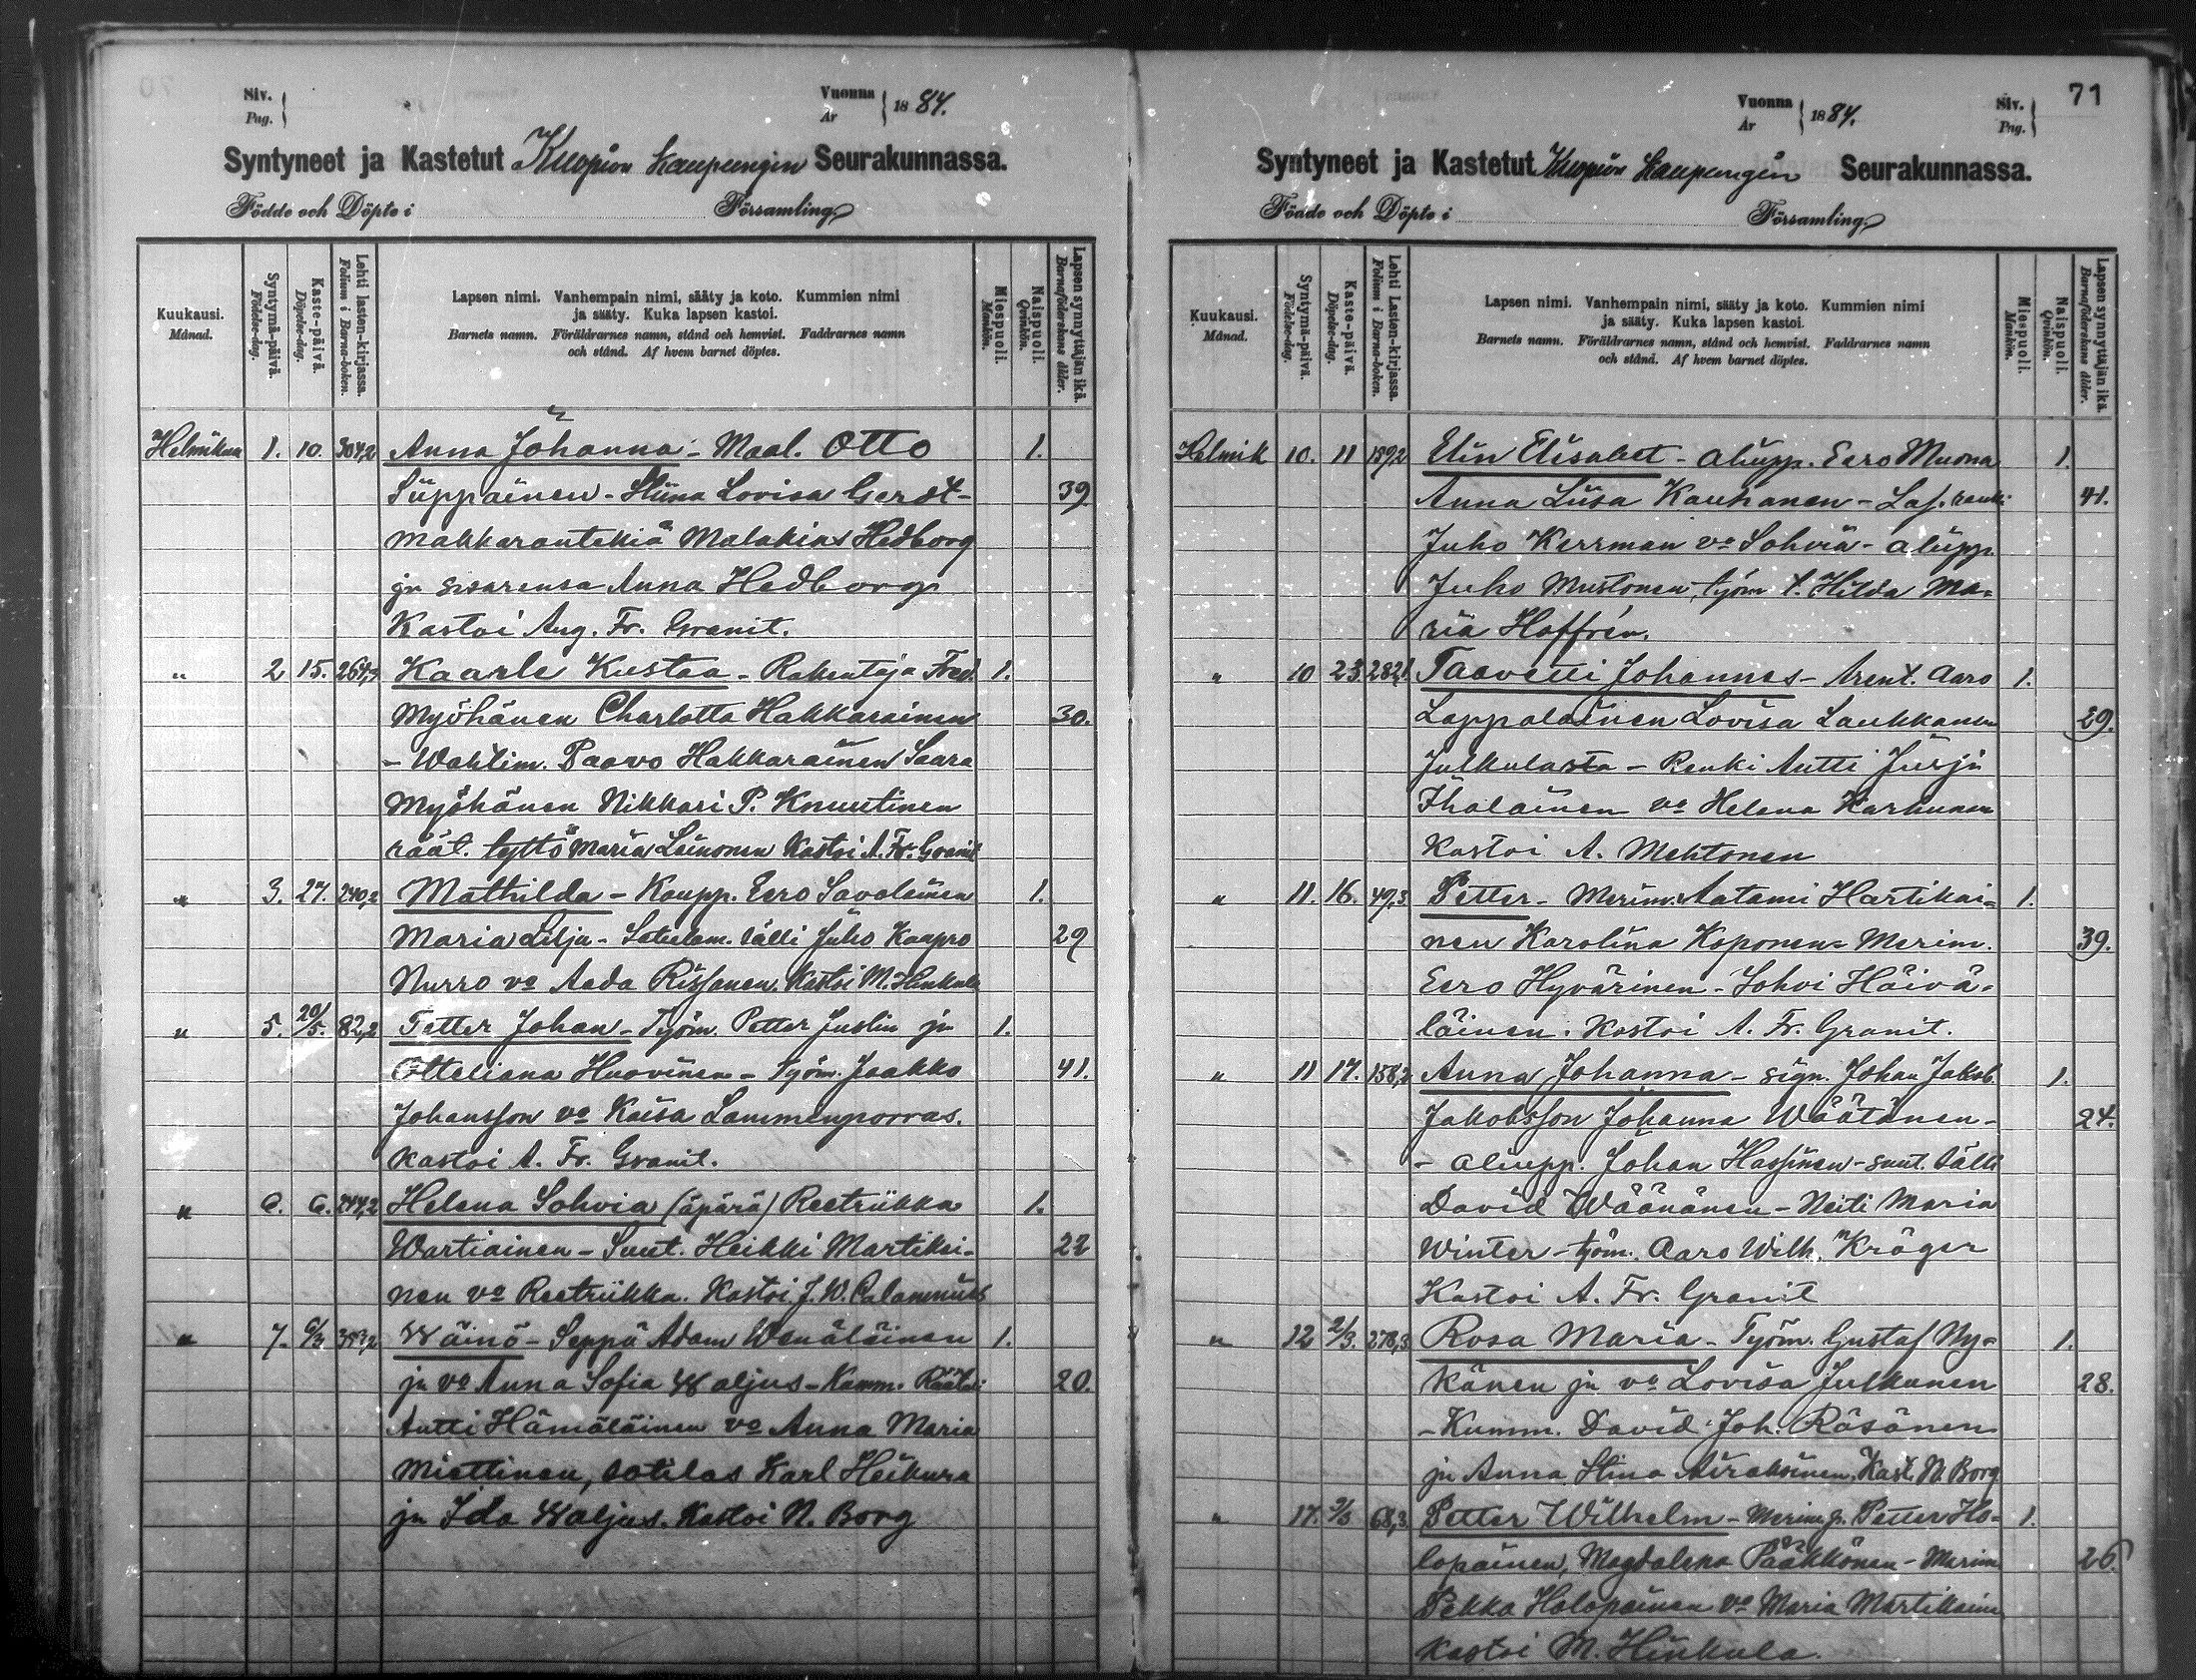 Siv.
Pag.
Vuonna
År
1884.
Syntyneet ja Kastetut Kuopion kaupungin Seurakunnassa.
Födde och Döpte i Församling.
Kuukausi.
Månad.
Syntymä-päivä.
Födelse-dag.
Kaste-päivä.
Döpelse-dag.
Lehti lasten-kirjassa.
Folium i Barna-boken.
Lapsen nimi. Vanhempain nimi, sääty ja koto. Kummien nimi
ja sääty. Kuka lapsen kastoi.
Barnets namn. Föräldrarnes namn, stånd och hemvist. Faddrarnes namn
och stånd. Af hvem barnet döptes.
Miespuoli.
Mankön.
Naispuoli.
Qvinkön.
Lapsen synnyttäjän ikä.
Barnaföderskans ålder.
Helmikuu 1. 10. 304,2 Anna Johanna - Maal. Otto 1.
Siippainen - Stiina Lovisa Gerdt - 39.
makkarantekiä Malakias Hedborg
ja sisarensa Anna Hedborg
Kastoi Aug. Fr. Granit.
" 2 15. Kaarle Kustaa - Rakentaja Fred. 1.
Myöhänen Charlotta Hakkarainen 30.
- Wahtim. Paavo Hakkarainen Saara
Myöhänen Nikkari P. Knuutinen
räät. tyttö Maria Leinonen Kastoi A. Fr. Granit
" 3. 27. 240,2 Mathilda - Kaupp. Eero Savolainen 1.
Maria Lilja - Satulam. sälli Juho Kaapro 29
Nurro vo Aeda Rissanen. Kastoi M. Hinkula
" 5. 20/5. 82,2 Petter Johan - Työm. Petter Juslin ja 1.
Otteliana Huovinen - Työm. Jaakko 41.
Johansson vo Kaisa Lammenporras.
Kastoi A. Fr. Granit.
" 6. 6. 244,2 Helena Sohvia (äpärä) Reetriikka 1.
Wartiainen - Suut. Heikki Martikai- 22
nen vo Reetriikka. Kastoi J. W. Calamnius
" 7. 6/3 353,2 Wäinö - Seppä Adam Wenäläinen 1.
ja vo Anna Sofia Waljus - Kumm. Räätäli 20.
Antti Hämäläinen vo Anna Maria
Miettinen, sotilas Karl Heikura
ja Ida Waljus. Kastoi N. Borg
71
Vuonna
År
1884.
Siv.
Pag.
Syntyneet ja Kastetut Kuopion kaupungin Seurakunnassa.
Födde och Döpte i Församling.
Kuukausi.
Månad.
Syntymä-päivä.
Födelse-dag.
Kaste-päivä.
Döpelse-dag.
Lehti Lasten-kirjassa.
Folium i Barna-boken.
Lapsen nimi. Vanhempain nimi, sääty ja koto. Kummien nimi
ja sääty. Kuka lapsen kastoi.
Barnets namn. Föräldrarnes namn, stånd och hemvist. Faddrarnes namn
och stånd. Af hvem barnet döptes.
Miespuoli.
Mankön.
Naispuoli.
Qvinkön.
Lapsen synnyttäjän ikä.
Barnaföderskans ålder.
Helmik 10. 11 159,2 Elin Elisabet - aliupp. Eero Muona 1.
Anna Liisa Kauhanen - Las. renki 41.
Juho Kerrman vo Sohvia - aliupp.
Juho Mustonen, työm t. Hilda Ma-
ria Hoffrén.
" 10 23 282,1 Taavetti Johannes - Arent. Aaro 1.
Lappalainen Lovisa Laukkanen 29.
Julkulasta - Renki Antti Jürji
Ihalainen vo Helena Karhunen
Kastoi A. Mehtonen
" 11. 16. 49,3 Petter - Merim. Aatami Hartikai- 1.
nen Karolina Koponen - Merim. 39.
Eero Hyvärinen - Sohvi Häivä-
läinen. Kastoi A. Fr. Granit.
" 11 17. 158,2 Anna Johanna - sign. Johan Jakob. 1.
Jakobsson Johanna Wäätänen - 24.
- aliupp. Johan Hassinen - suut. sälli
David Wäänänen - Neiti Maria
Winter - työm. Aaro Wilh. Kröger
Kastoi A. Fr. Granit
" 12 2/3. 278,3 Rosa Maria - Työm. Gustaf Ny- 1.
känen ja vo Lovisa Julkunen 28.
- Kumm. David Joh. Räsänen
ja Anna Stina Airaksinen. Kast. N. Borg
" 17. 2/3 68,3 Petter Wilhelm - Merim. p. Petter Ho- 1.
lopainen, Magdalena Pääkkönen - Merim 26.
Pekka Holopainen vo Maria Martikainen
Kastoi M. Hinkula.